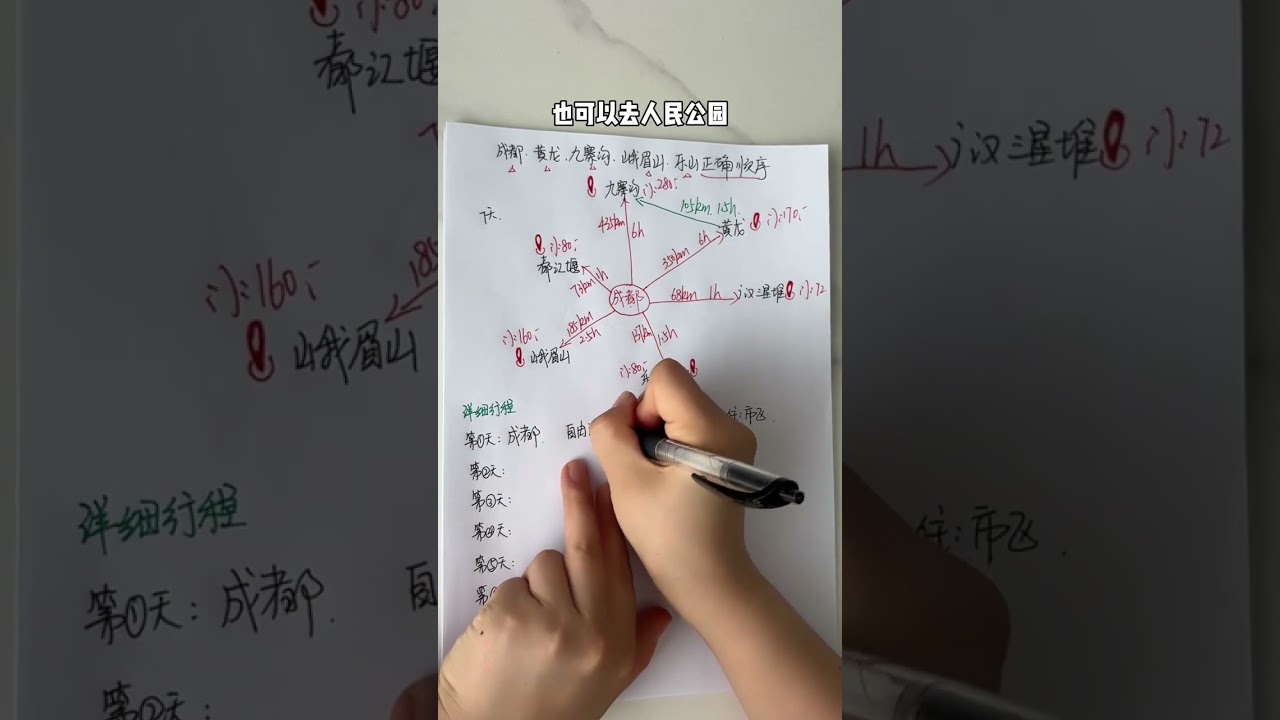 也可以去人民公园
成都. 黄龙. 九寨沟. 峨眉山. 乐山 正确顺序
九寨沟 门:280
7天.
425km 6h
105km. 1.5h.
黄龙 门:170
350km 6h
门:80
都江堰
73km 1h
成都
68km 1h 广汉三星堆 门:72
185km 2.5h
门:160
峨眉山
137km 1.5h
门:80
详细行程
第①天: 成都. 自由 住:市区.
第②天:
第③天:
第④天:
第⑤天:
第